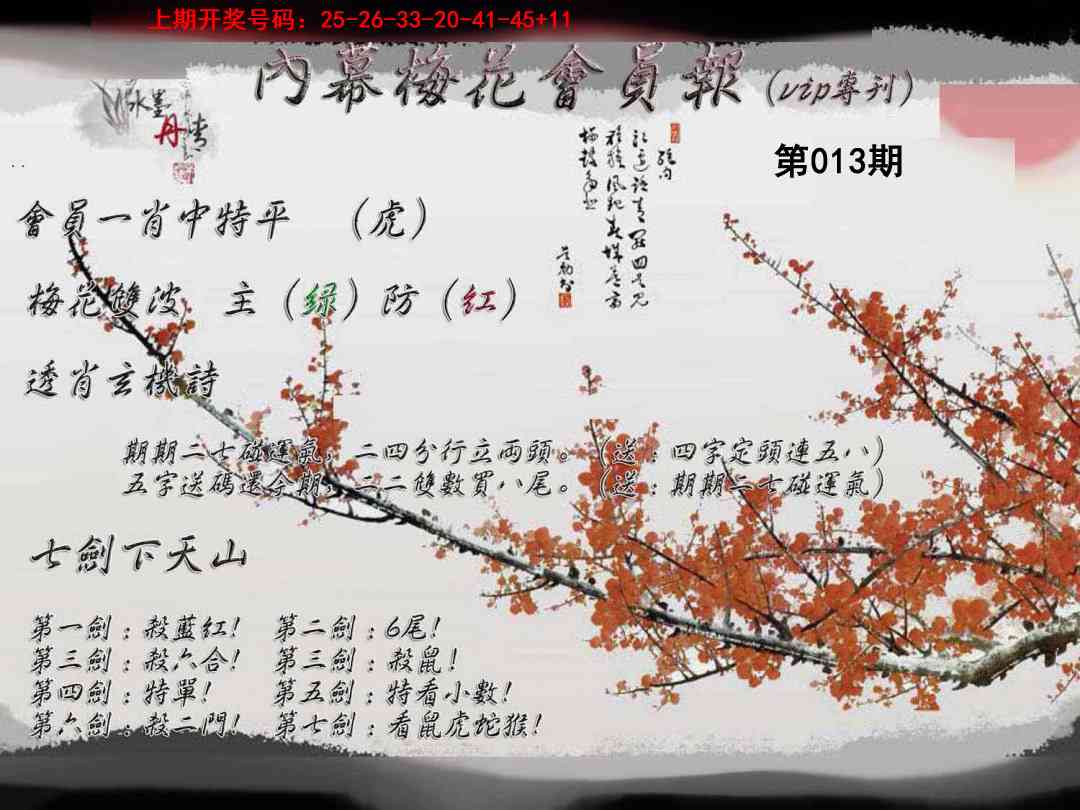 上期开奖号码：25-26-33-20-41-45+11
內幕梅花會員報（vip專刊）
水墨
丹青
第013期
會員一肖中特平　（虎）
梅花雙波　主（绿）防（红）
透肖玄機詩
期期二七碰運氣，二四分行立兩頭。（送：四字定頭連五八）
五字送碼還今期，二二雙數買八尾。（送：期期二七碰運氣）
七劍下天山
第一劍：殺藍紅！　第二劍：6尾！
第三劍：殺六合！　第三劍：殺鼠！
第四劍：特單！　第五劍：特看小數！
第六劍：殺二門！　第七劍：看鼠虎蛇猴！